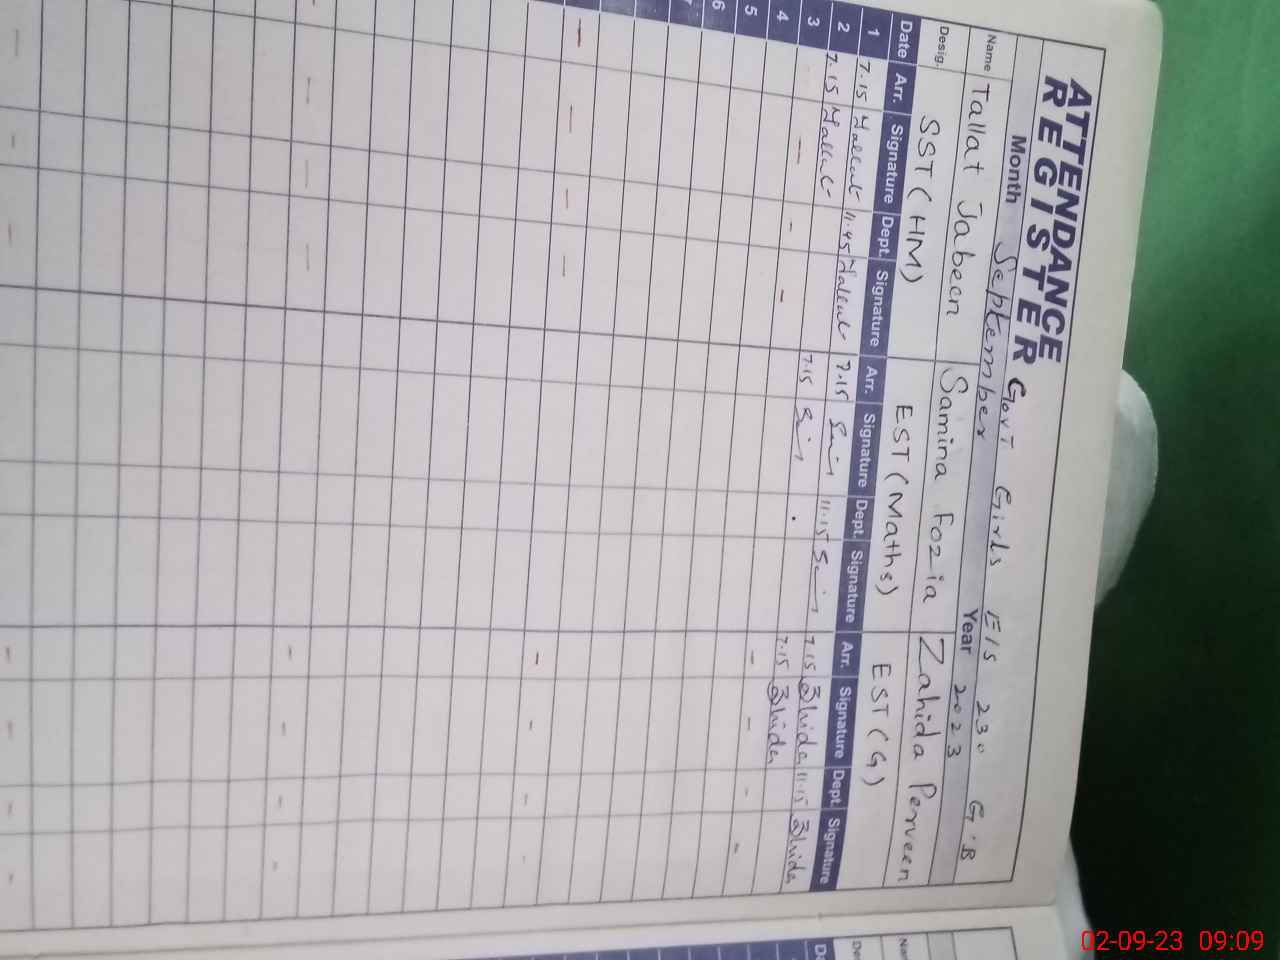 ATTENDANCE
REGISTER Govt Girls E/S 230 G.B
Month September Year 2023
Name Tallat Jabeen Samina Fozia Zahida Perveen
Desig. SST (HM) EST (Maths) EST (G)
Date Arr. Signature Dept. Signature Arr. Signature Dept. Signature Arr. Signature Dept. Signature
1 7.15 Tallat 11.45 Tallat 7.15 11.15 7.15 Zhida 11.15 Zhida
2 7.15 Tallat 7.15 7.15 Zhida
3
4
5
6
7
02-09-23 09:09